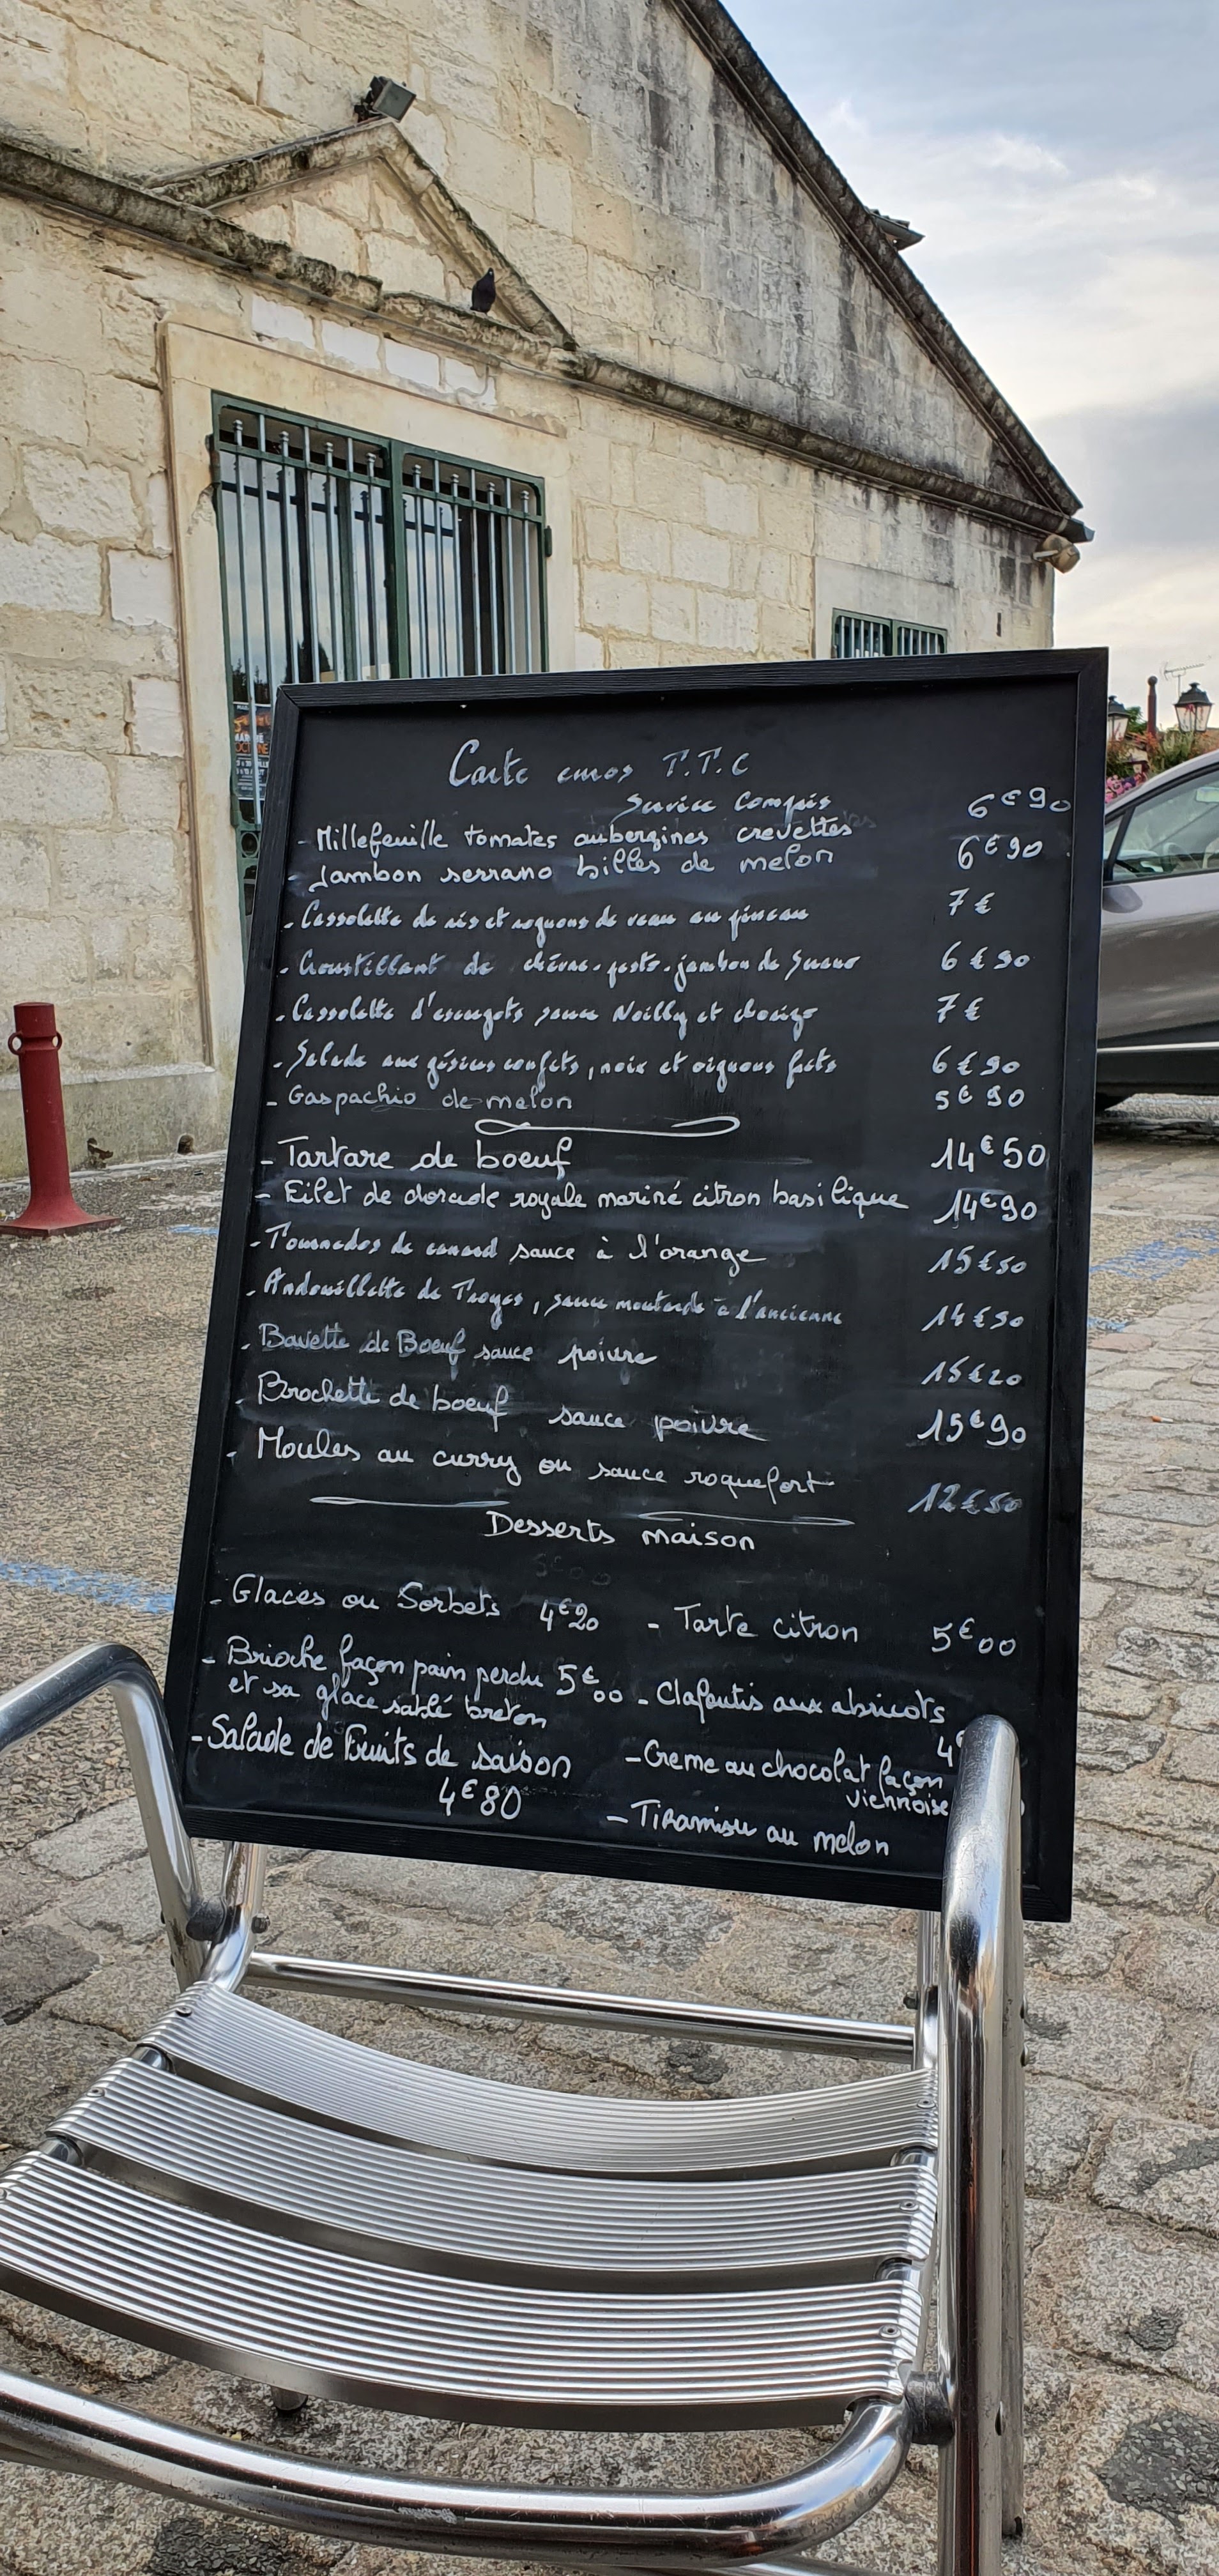 Carte euros T.T.C
Service Compris
- Millefeuille tomates aubergines crevettes 6€90
- Jambon serrano billes de melon 6€90
- Cassolette de ris et rognons de veau au pineau 7€
- Croustillant de chèvre-pesto-jambon de Serrano 6€90
- Cassolette d'escargots sauce Noilly et chorizo 7€
- Salade aux gésiers confits, noix et oignons frits 6€90
- Gaspachio de melon 5€90
- Tartare de boeuf 14€50
- Filet de dorade royale mariné citron basilique 14€90
- Tournedos de canard sauce à l'orange 15€50
- Andouillette de Troyes, sauce moutarde à l'ancienne 14€50
- Bavette de Boeuf sauce poivre 15€20
- Brochette de boeuf sauce poivre 15€90
- Moules au curry ou sauce roquefort 12€50
Desserts maison
- Glaces ou Sorbets 4€20
- Tarte citron 5€00
- Brioche façon pain perdu 5€00
et sa glace sablé breton
- Clafoutis aux abricots
4€
- Salade de Fruits de saison
4€80
- Creme au chocolat façon
viennoise
- Tiramisu au melon